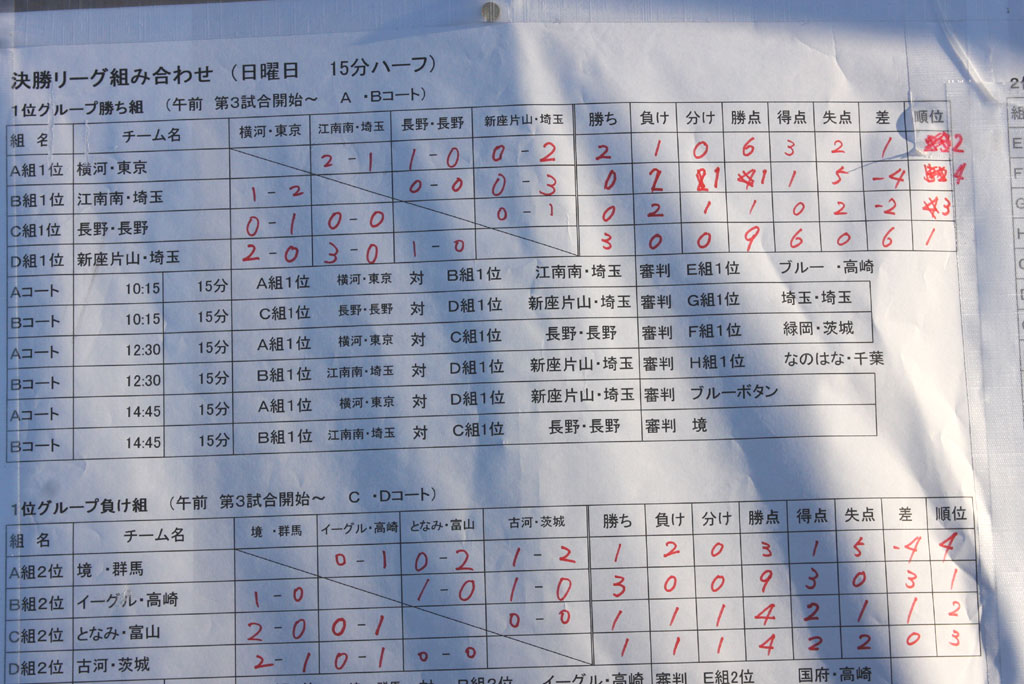 決勝リーグ組み合わせ （日曜日 15分ハーフ）
1位グループ勝ち組 （午前 第3試合開始～ A ・Bコート）
組 名 チーム名 横河・東京 江南南・埼玉 長野・長野 新座片山・埼玉 勝ち 負け 分け 勝点 得点 失点 差 順位
A組1位 横河・東京 2-1 1-0 0-2 2 1 0 6 3 2 1 2
B組1位 江南南・埼玉 1-2 0-0 0-3 0 2 1 1 1 5 -4 4
C組1位 長野・長野 0-1 0-0 0-1 0 2 1 1 0 2 -2 3
D組1位 新座片山・埼玉 2-0 3-0 1-0 3 0 0 9 6 0 6 1
Aコート 10:15 15分 A組1位 横河・東京 対 B組1位 江南南・埼玉 審判 E組1位 ブルー ・高崎
Bコート 10:15 15分 C組1位 長野・長野 対 D組1位 新座片山・埼玉 審判 G組1位 埼玉・埼玉
Aコート 12:30 15分 A組1位 横河・東京 対 C組1位 長野・長野 審判 F組1位 緑岡・茨城
Bコート 12:30 15分 B組1位 江南南・埼玉 対 D組1位 新座片山・埼玉 審判 H組1位 なのはな・千葉
Aコート 14:45 15分 A組1位 横河・東京 対 D組1位 新座片山・埼玉 審判 ブルーボタン
Bコート 14:45 15分 B組1位 江南南・埼玉 対 C組1位 長野・長野 審判 境
1位グループ負け組 （午前 第3試合開始～ C ・Dコート）
組 名 チーム名 境 ・群馬 イーグル・高崎 となみ・富山 古河・茨城 勝ち 負け 分け 勝点 得点 失点 差 順位
A組2位 境 ・群馬 0-1 0-2 1-2 1 2 0 3 1 5 -4 4
B組2位 イーグル・高崎 1-0 1-0 1-0 3 0 0 9 3 0 3 1
C組2位 となみ・富山 2-0 0-1 0-0 1 1 1 4 2 1 1 2
D組2位 古河・茨城 2-1 0-1 0-0 1 1 1 4 2 2 0 3
イーグル・高崎 審判 E組2位 国府・高崎